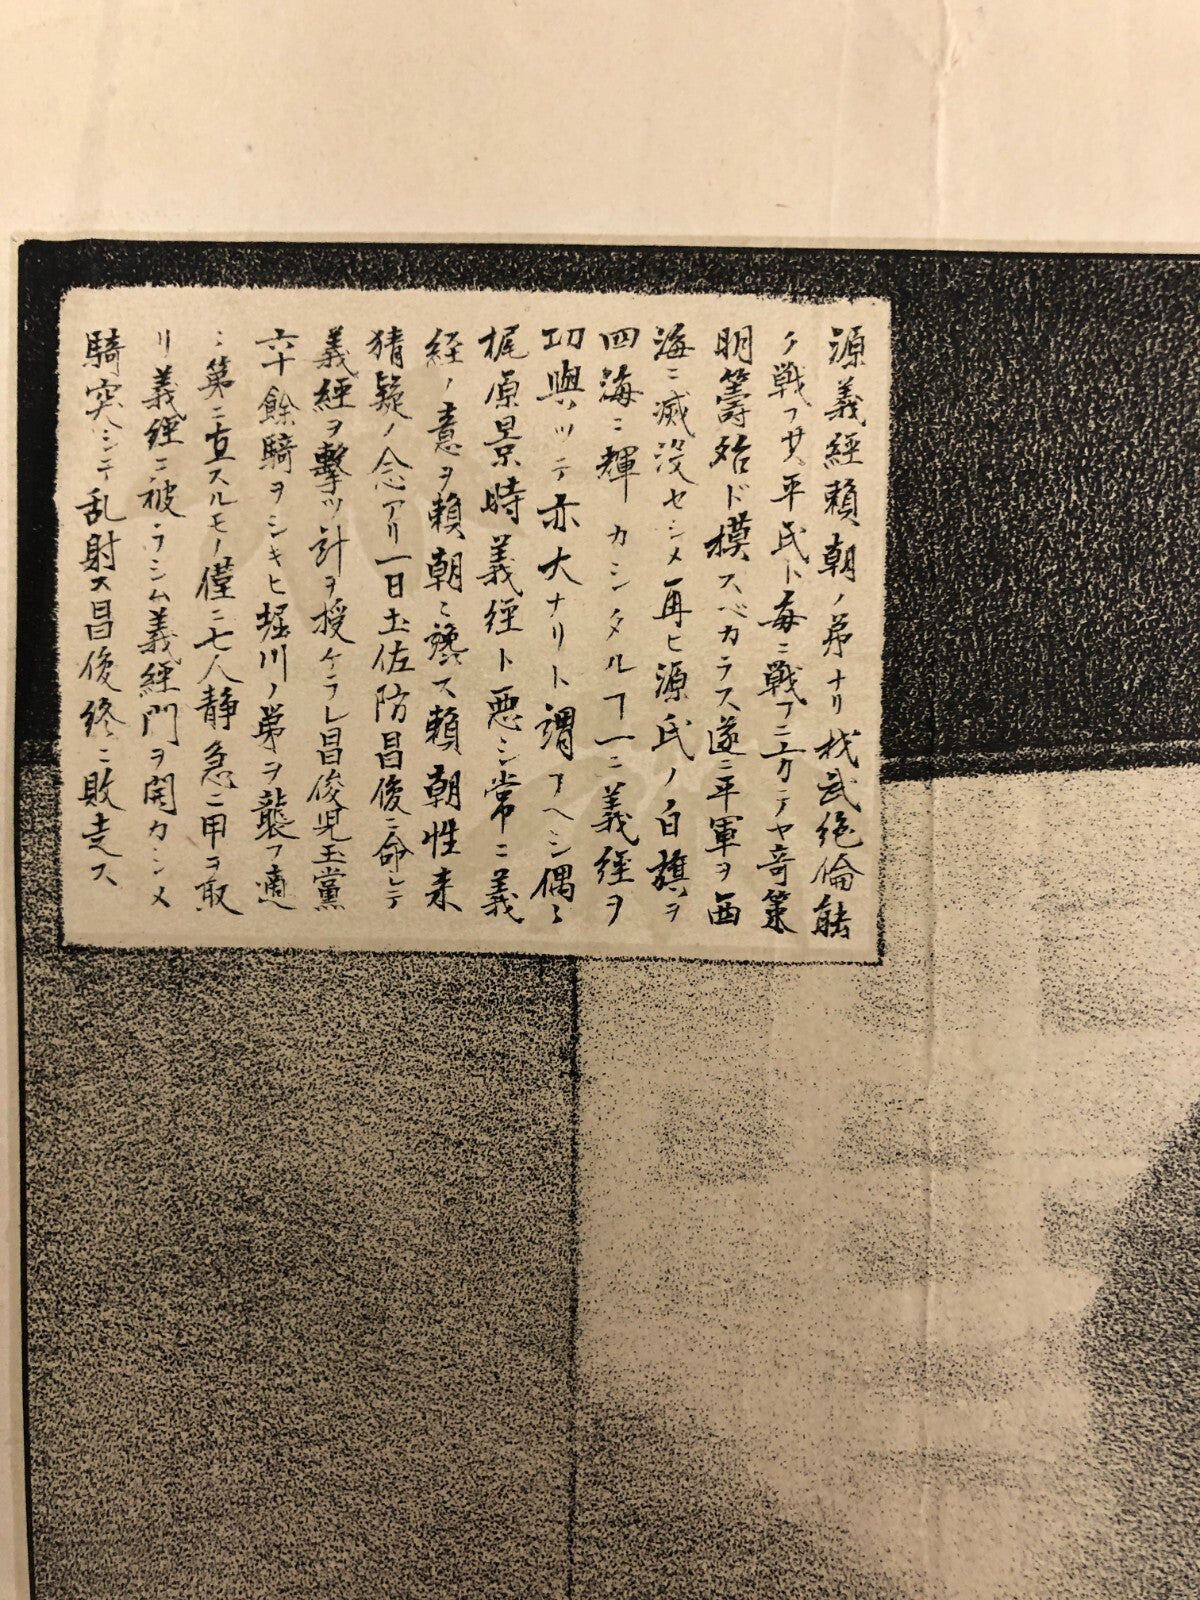 源義經頼朝ノ弟ナリ材武絶倫能
ク戦フ共平氏ト毎ニ戦フニ方テヤ奇策
明籌殆ド模スベカラス遂ニ平軍ヲ西
海ニ滅没セシメ再ヒ源氏ノ白旗ヲ
四海ニ輝カシタルヿ一ニ義經ヲ
功與ツテ亦大ナリト謂フヘシ偶々
梶原景時義經ト悪シ常ニ義
経ノ意ヲ頼朝ニ讒ス頼朝性来
猜疑ノ念アリ一日土佐防昌俊ニ命シテ
義經ヲ撃ツ計ヲ授ケラレ昌俊児玉黨
六十餘騎ヲシキヒ堀川ノ第ヲ襲フ適
ニ第ニ直スルモノ僅ニ七人静急ニ甲ヲ取
リ義經ニ被ラシム義經門ヲ開カシメ
騎突シテ乱射ス昌俊終ニ敗走ス